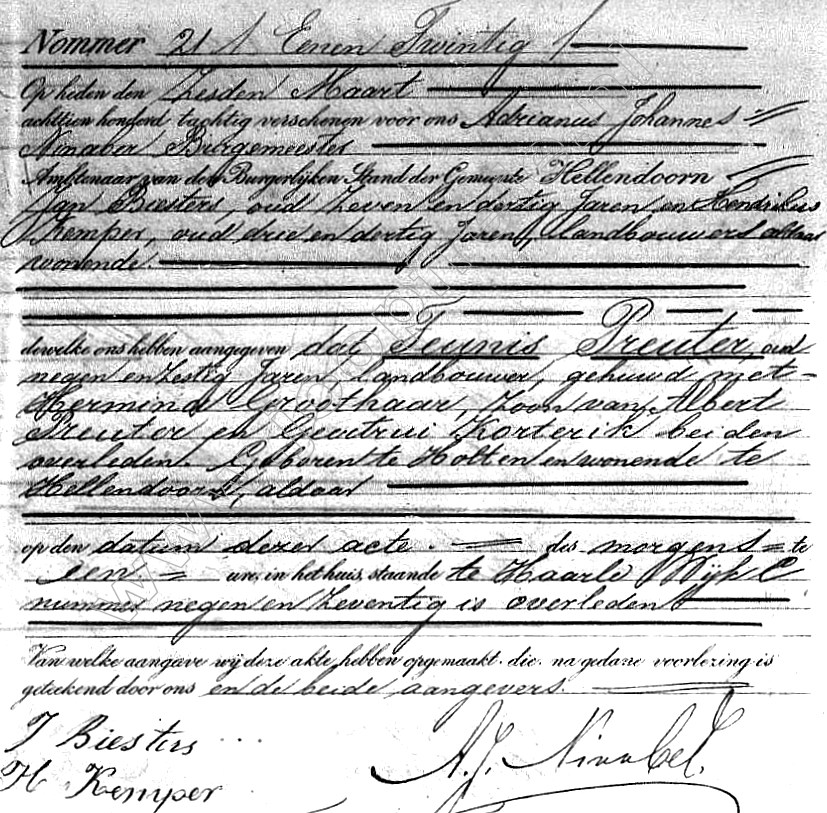 Nommer 21 / Eenen Twintig /
Op heden den Zesden Maart
achttien honderd tachtig verschenen voor ons Adrianus Johannes
Ninaber Burgemeester
Ambtenaar van den Burgerlijken Stand der Gemeente Hellendoorn
Jan Biesters, oud zeven en dertig Jaren en Hendrikus
Kemper, oud drie en dertig Jaren, Landbouwers aldaar
wonende.
dewelke ons hebben aangegeven dat Teunis Preuter, oud
negen en Zestig Jaren, Landbouwer, gehuwd met
Hermina Groothaar, Zoon van Albert
Preuter en Geertrui Korterik beiden
overleden. Geboren te Holten en wonende te
Hellendoorn, aldaar
op den datum dezer acte. des morgens te
een ure, in het huis, staande te Haarle Wijk C
nummer negen en Zeventig is overleden
Van welke aangave wij deze akte hebben opgemaakt. die. na gedane voorlezing is
geteekend door ons en de beide aangevers.
J Biesters
H Kemper
A.J. Ninaber.